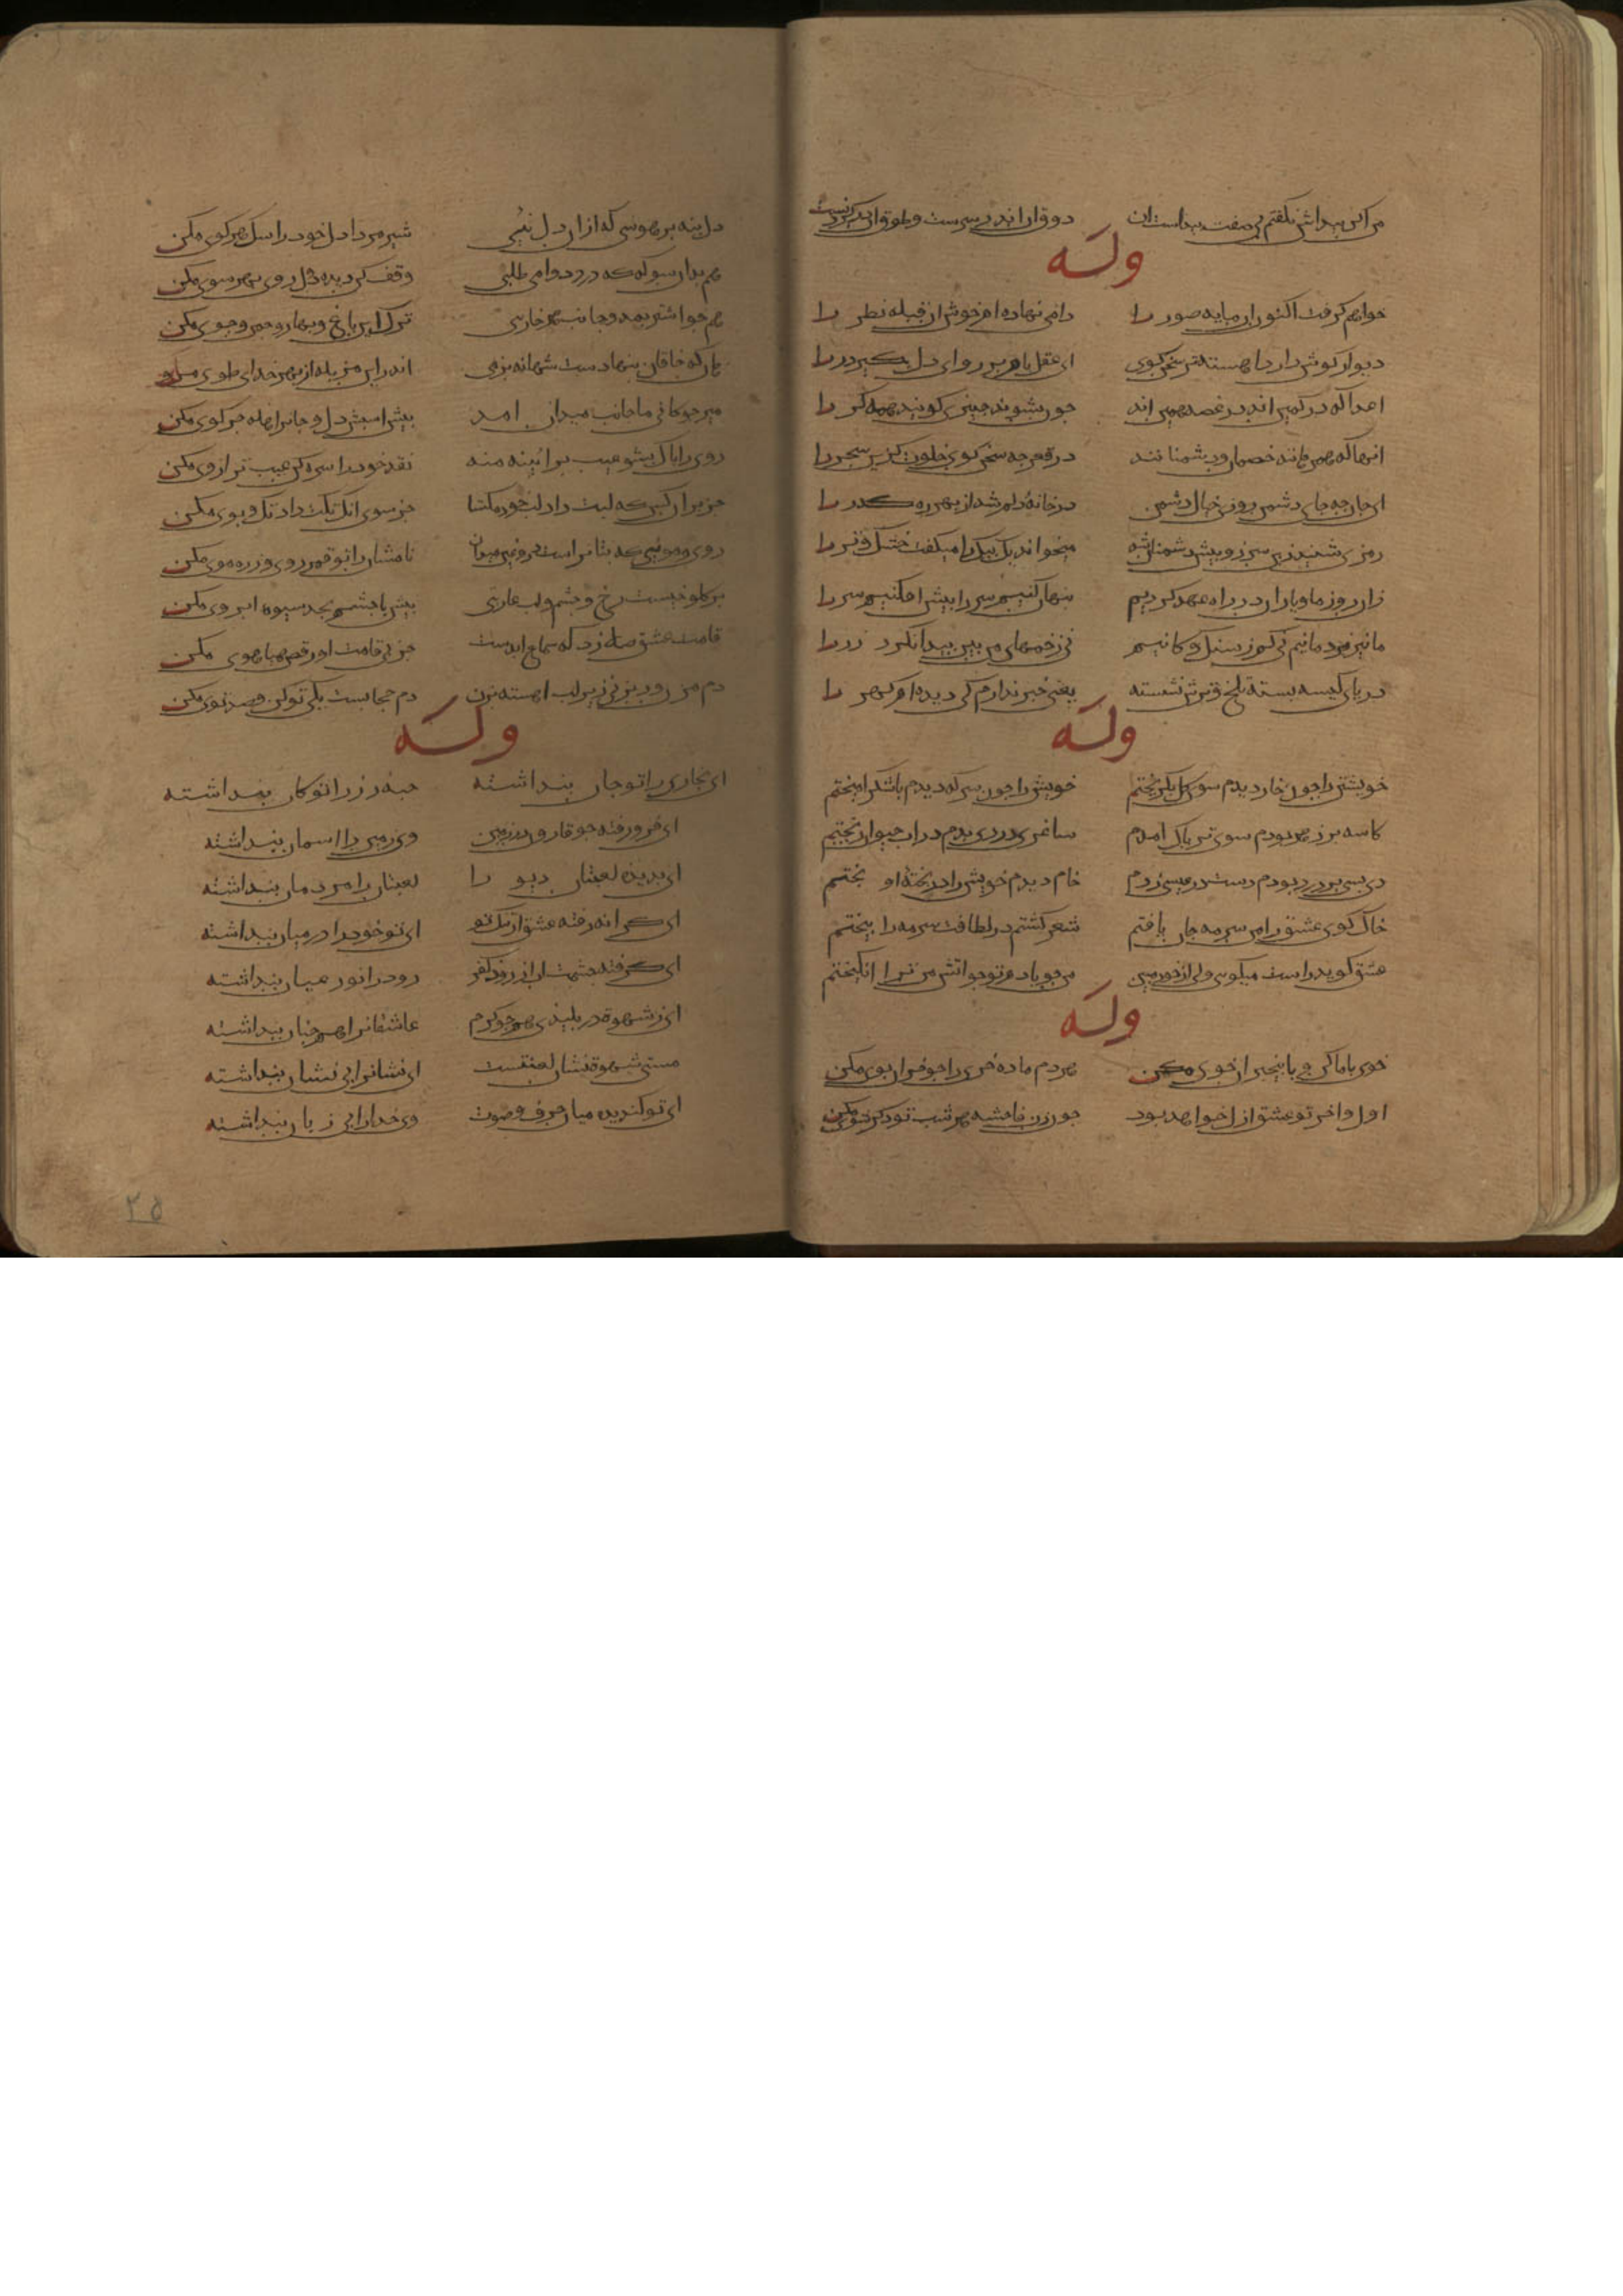 من اکن پیداش نکفتم بی صفت پیداست ان    دو قرار اندر سرست و طوق اندر کردنست
وله
خواهم کرفت اکنون ان مایه صور را    دامی نهاده ام خوش ان قبله نظر را
دیوار کوش دارد اهسته تر سخن کوی    ای عقل بام بر رو ای دل بکیر در را
اعدا که در کمین اند در غصه همین اند    چون بشنوند چیزی کویند همدکر را
در قعر چه سخن کو خلوت کزین سحر را
ای جان چه جای دشمن روزی خیال دشمن    در خانه دلم شد از بهر ره کذر را
رمزی شنید زین سر زو پیش دشمنان شد    میخواند یک بیک را میکفت خشک و تر را
زان روز ما و یاران در راه عهد کردیم    پنهان کنیم سر را پیش افکنیم سر را
ما نیز مردمانیم نی کم ز سنک کانیم    بی زخمهای میتین پیدا نکرد زر را
دریای کیسه بسته تلخ و ترش نشسته    یعنی خبر ندارم کی دیده ام کهر را
وله
خویشتن را چون خار دیدم سوی کل بکریختم    خویش را چون سرکه دیدم با شکر امیختم
کاسه پر زهر بودم سوی تریاک امدم    ساغری دردی بدم در اب حیوان ریختم
دیده پر درد بودم دست در عیسی زدم    خام دیدم خویش را در پخته او پختم
خاک کوی عشق را من سرمه جان یافتم    شعر کشتم در لطافت سرمه را بیختم
عشق کوید راست میکوی ولی از خود مبین    من چو بادم تو چو اتش من ترا انکیختم
وله
خوی با ما کن و با بیخبران خوی مکن    هر دم ماده خری را چو خران بوی مکن
اول و اخر تو عشق ازل خواهد بود    چون زن فاحشه هر شب تو دکر شوی مکن
دل بنه بر هوسی که از ان دل نکنی    شیر مردا دل خود را سک هر کوی مکن
هم بدان سو که که درد دوا می طلبی    وقف کن دیده و دل روی بهر سوی مکن
هم چو اشتر بمدو جانب هر خاربنی    ترک این باغ و بهار و چمن و جوی مکن
هان که خاقان بنهادست شهانه بزمی    اندر این مزبله از بهر خدا طوی مکن
میر چوکانی ما جانب میدان امد    پیش اسبش دل و جان را هله جز کوی مکن
روی را پاک بشو عیب بر ائینه منه    نقد خود را سره کن عیب ترازوی مکن
جز بر ان کس که لبت داد لب خود مکشا    جز سوی انک تکت داد تک و پوی مکن
روی و مویی که بتان راست دروغین میدان    نامشان را تو قمر روی و زره موی مکن
بر کلوخیست رخ و چشم و لب عاریتی    پیش با چشم بجد شیوه ابروی مکن
قامت عشق صلا زد که سماع ابدیست    جز پی قامت او رقص و هیاهوی مکن
دم مزن ور بزنی زیر لب اهسته بزن    دم حجابست یکی تو کن و صد توی مکن
وله
ای بخاری را تو جان پنداشته    حبه زر را تو کان پنداشته
ای فرو رفته چو قارون در زمین    وی زمین را اسمان پنداشته
ای بدیده لعبتان دیو را    لعبتان را مردمان پنداشته
ای کرانه رفته عشق از ننک تو    ای تو خود را در میان پنداشته
ای کرفته چشمت اب از دود کفر    دود را نور عیان پنداشته
ای ز شهوت در پلیدی همچو کرم    عاشقان را همچنان پنداشته
مستی شهوت نشان لعنتست    ای نشان را بی نشان پنداشته
ای تو کندیده میان حرف و صوت    وی خدا را بی زبان پنداشته
۲۵